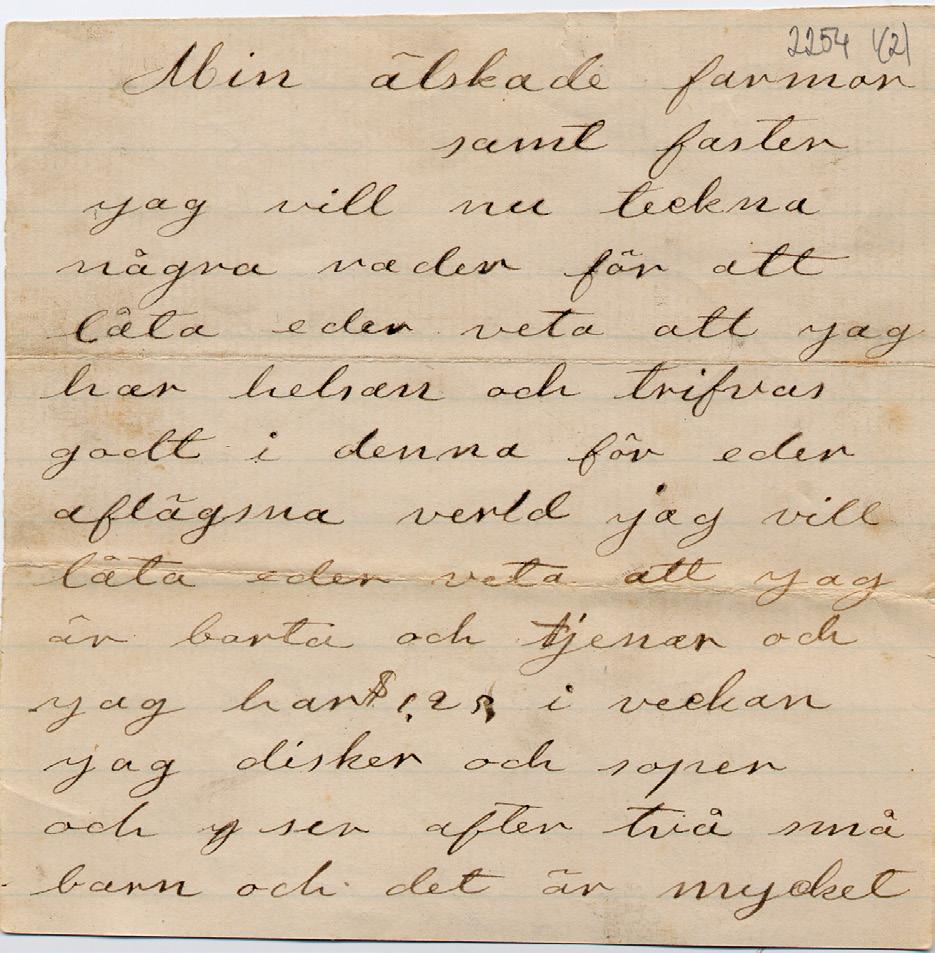 2254 1(2)
Min älskade farmor
samt faster
yag vill nu teckna
några rader för att
låta eder veta att yag
har helsan och trifvas
godt i denna för eder
aflägsna verld jag vill
låta eder veta att yag
är borta och tjenar och
yag har $1.25 i veckan
yag disker och soper
och ser after två små
barn och det är mycket